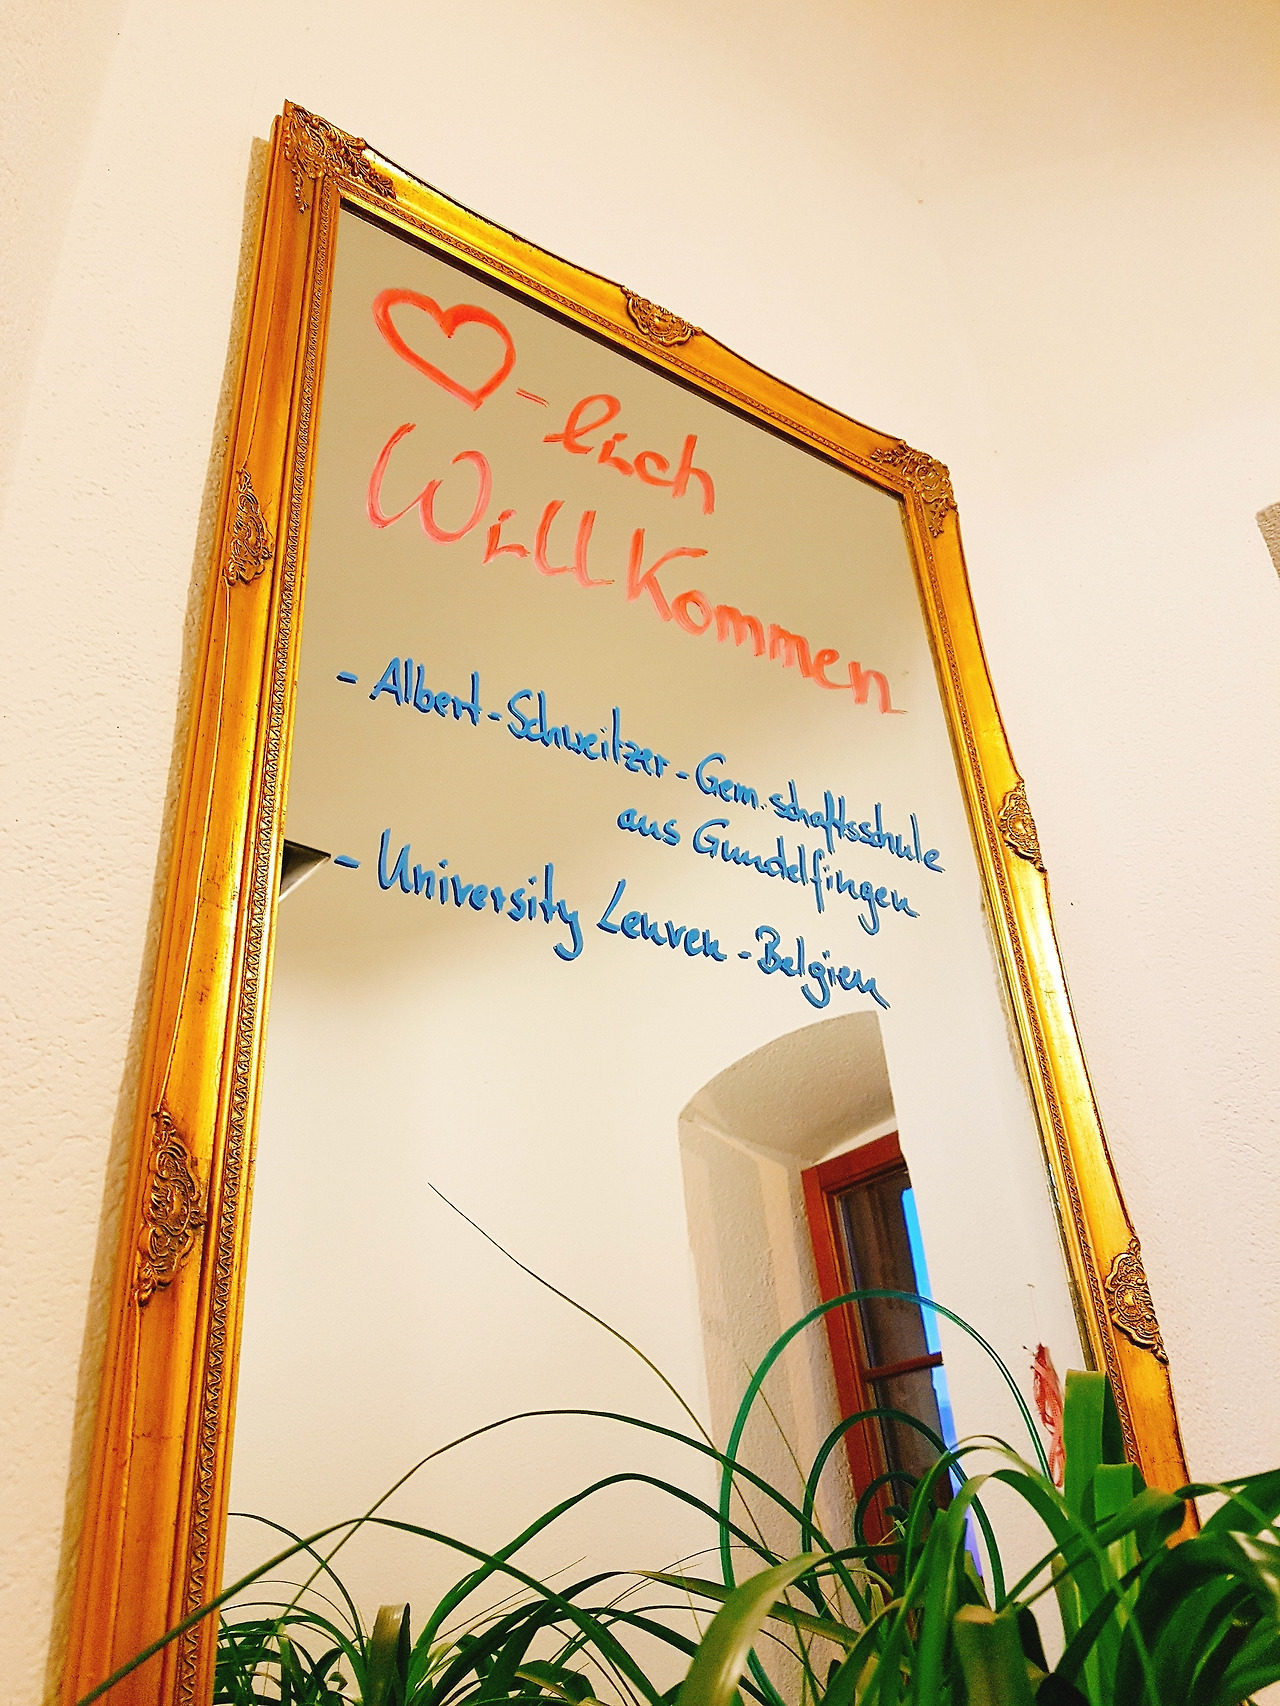 ♡-lich
Willkommen
- Albert-Schweitzer-Gem.schaftsschule
aus Gundelfingen
- University Leuven - Belgien